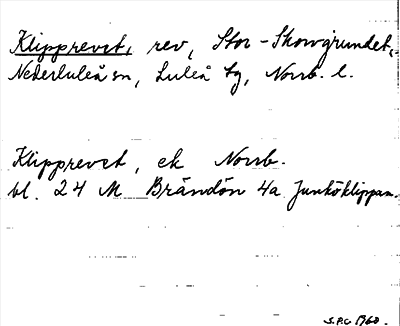 Klipprevet, rev, Stor-Skovgrundet,
Nederluleå sn, Luleå tg, Norrb. l.
Klipprevet, ek Norrb.
bl. 24 M Brändön 4a Junköklippan.
S.P.C 1960.